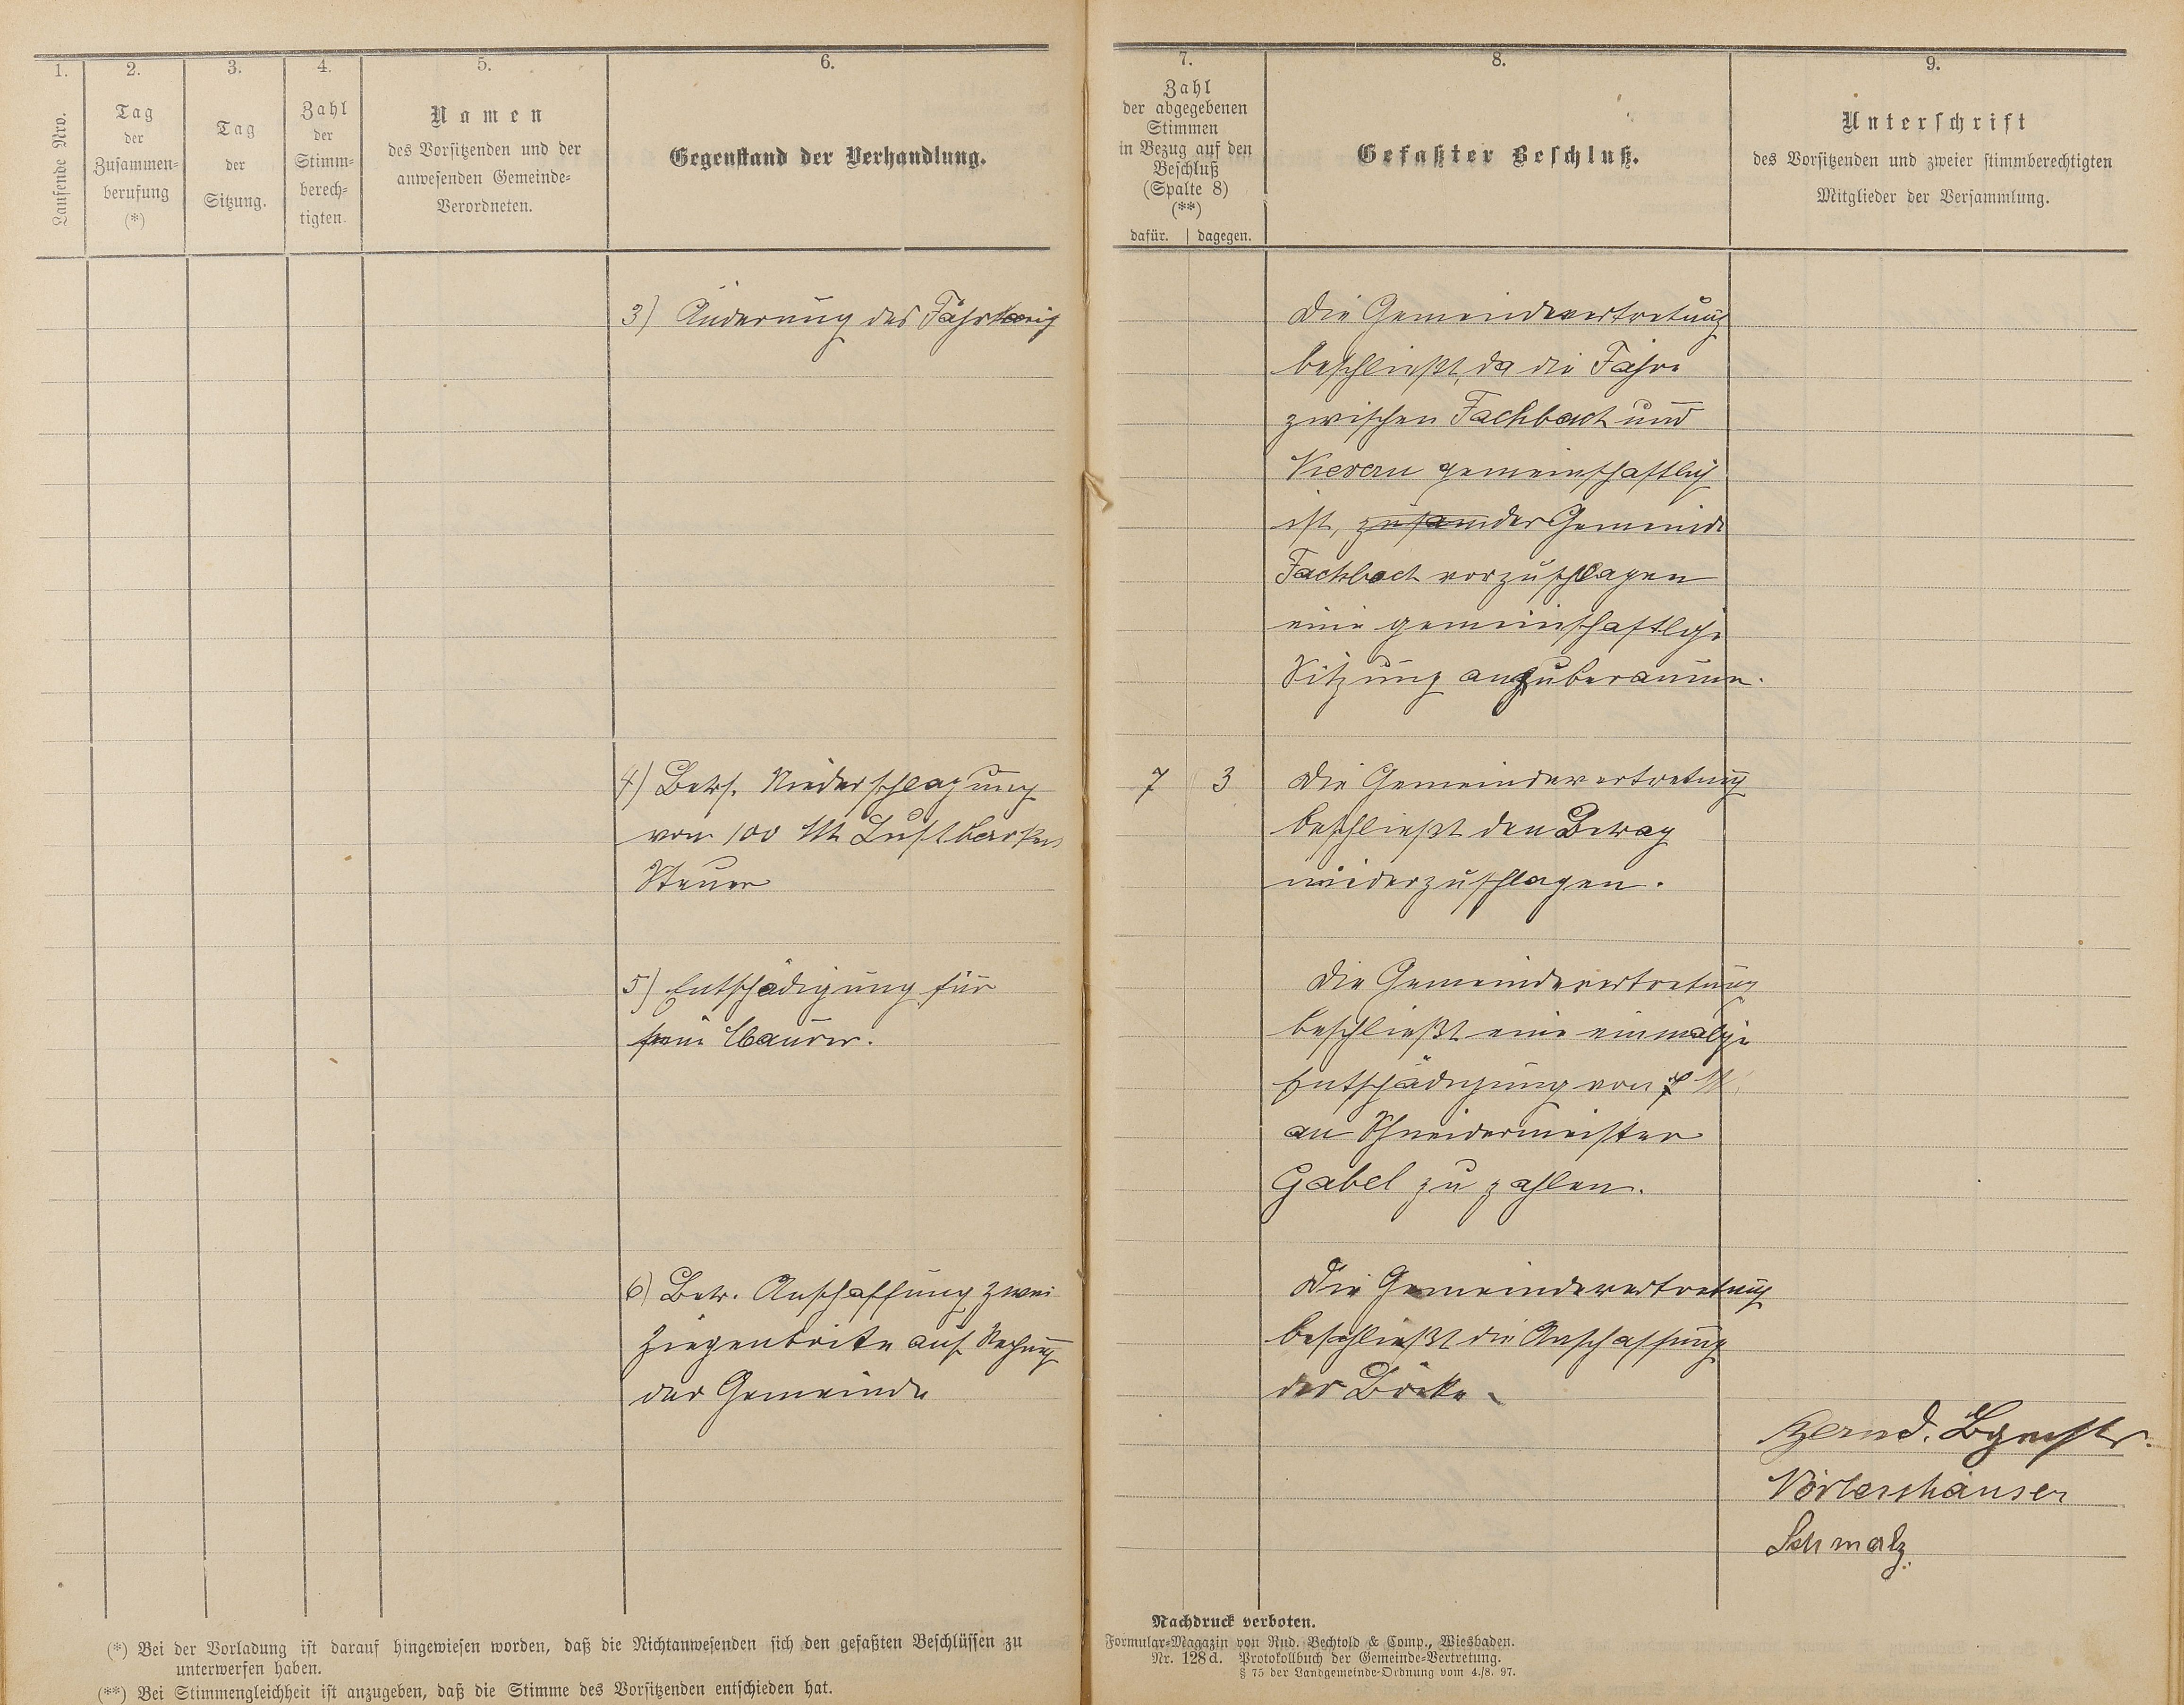 1.
Laufende Nro.
2.
Tag
der
Zusammen-
berufung
(*)
3.
Tag
der
Sitzung.
4.
Zahl
der
Stimm-
berech-
tigten.
5.
Namen
des Vorsitzenden und der
anwesenden Gemeinde-
Verordneten.
6.
Gegenstand der Verhandlung.
3) Änderung des
4) Betr. Niederschlagung
von 100 M Lustbarkeits
Steuer
5) Entschädigung für
6) Betr. Anschaffung zwei
Ziegenböcke auf Rechnung
der Gemeinde
(*) Bei der Vorladung ist darauf hingewiesen worden, daß die Nichtanwesenden sich den gefaßten Beschlüssen zu
unterwerfen haben.
(**) Bei Stimmengleichheit ist anzugeben, daß die Stimme des Vorsitzenden entschieden hat.
7.
Zahl
der abgegebenen
Stimmen
in Bezug auf den
Beschluß
(Spalte 8)
(**)
dafür. | dagegen.
8.
Gefaßter Beschluß.
9.
Unterschrift
des Vorsitzenden und zweier stimmberechtigten
Mitglieder der Versammlung.
Die Gemeindevertretung
beschließt, da die Fähre
zwischen Fachbach und
Nievern gemeinschaftlich
ist, der Gemeinde
Fachbach vorzuschlagen
eine gemeinschaftliche
Sitzung anzuberaumen.
7 3 Die Gemeindevertretung
beschließt den Betrag
niederzuschlagen.
Die Gemeindevertretung
beschließt eine einmalige
Entschädigung von M
an Schneidermeister
Gabel zu zahlen.
Die Gemeindevertretung
beschließt die Anschaffung
der Böcke.
Bgrmstr.
Schmalz.
Nachdruck verboten.
Formular-Magazin von Rud. Bechtold & Comp., Wiesbaden.
Nr. 128d. Protokollbuch der Gemeinde-Vertretung.
§ 75 der Landgemeinde-Ordnung vom 4./8. 97.